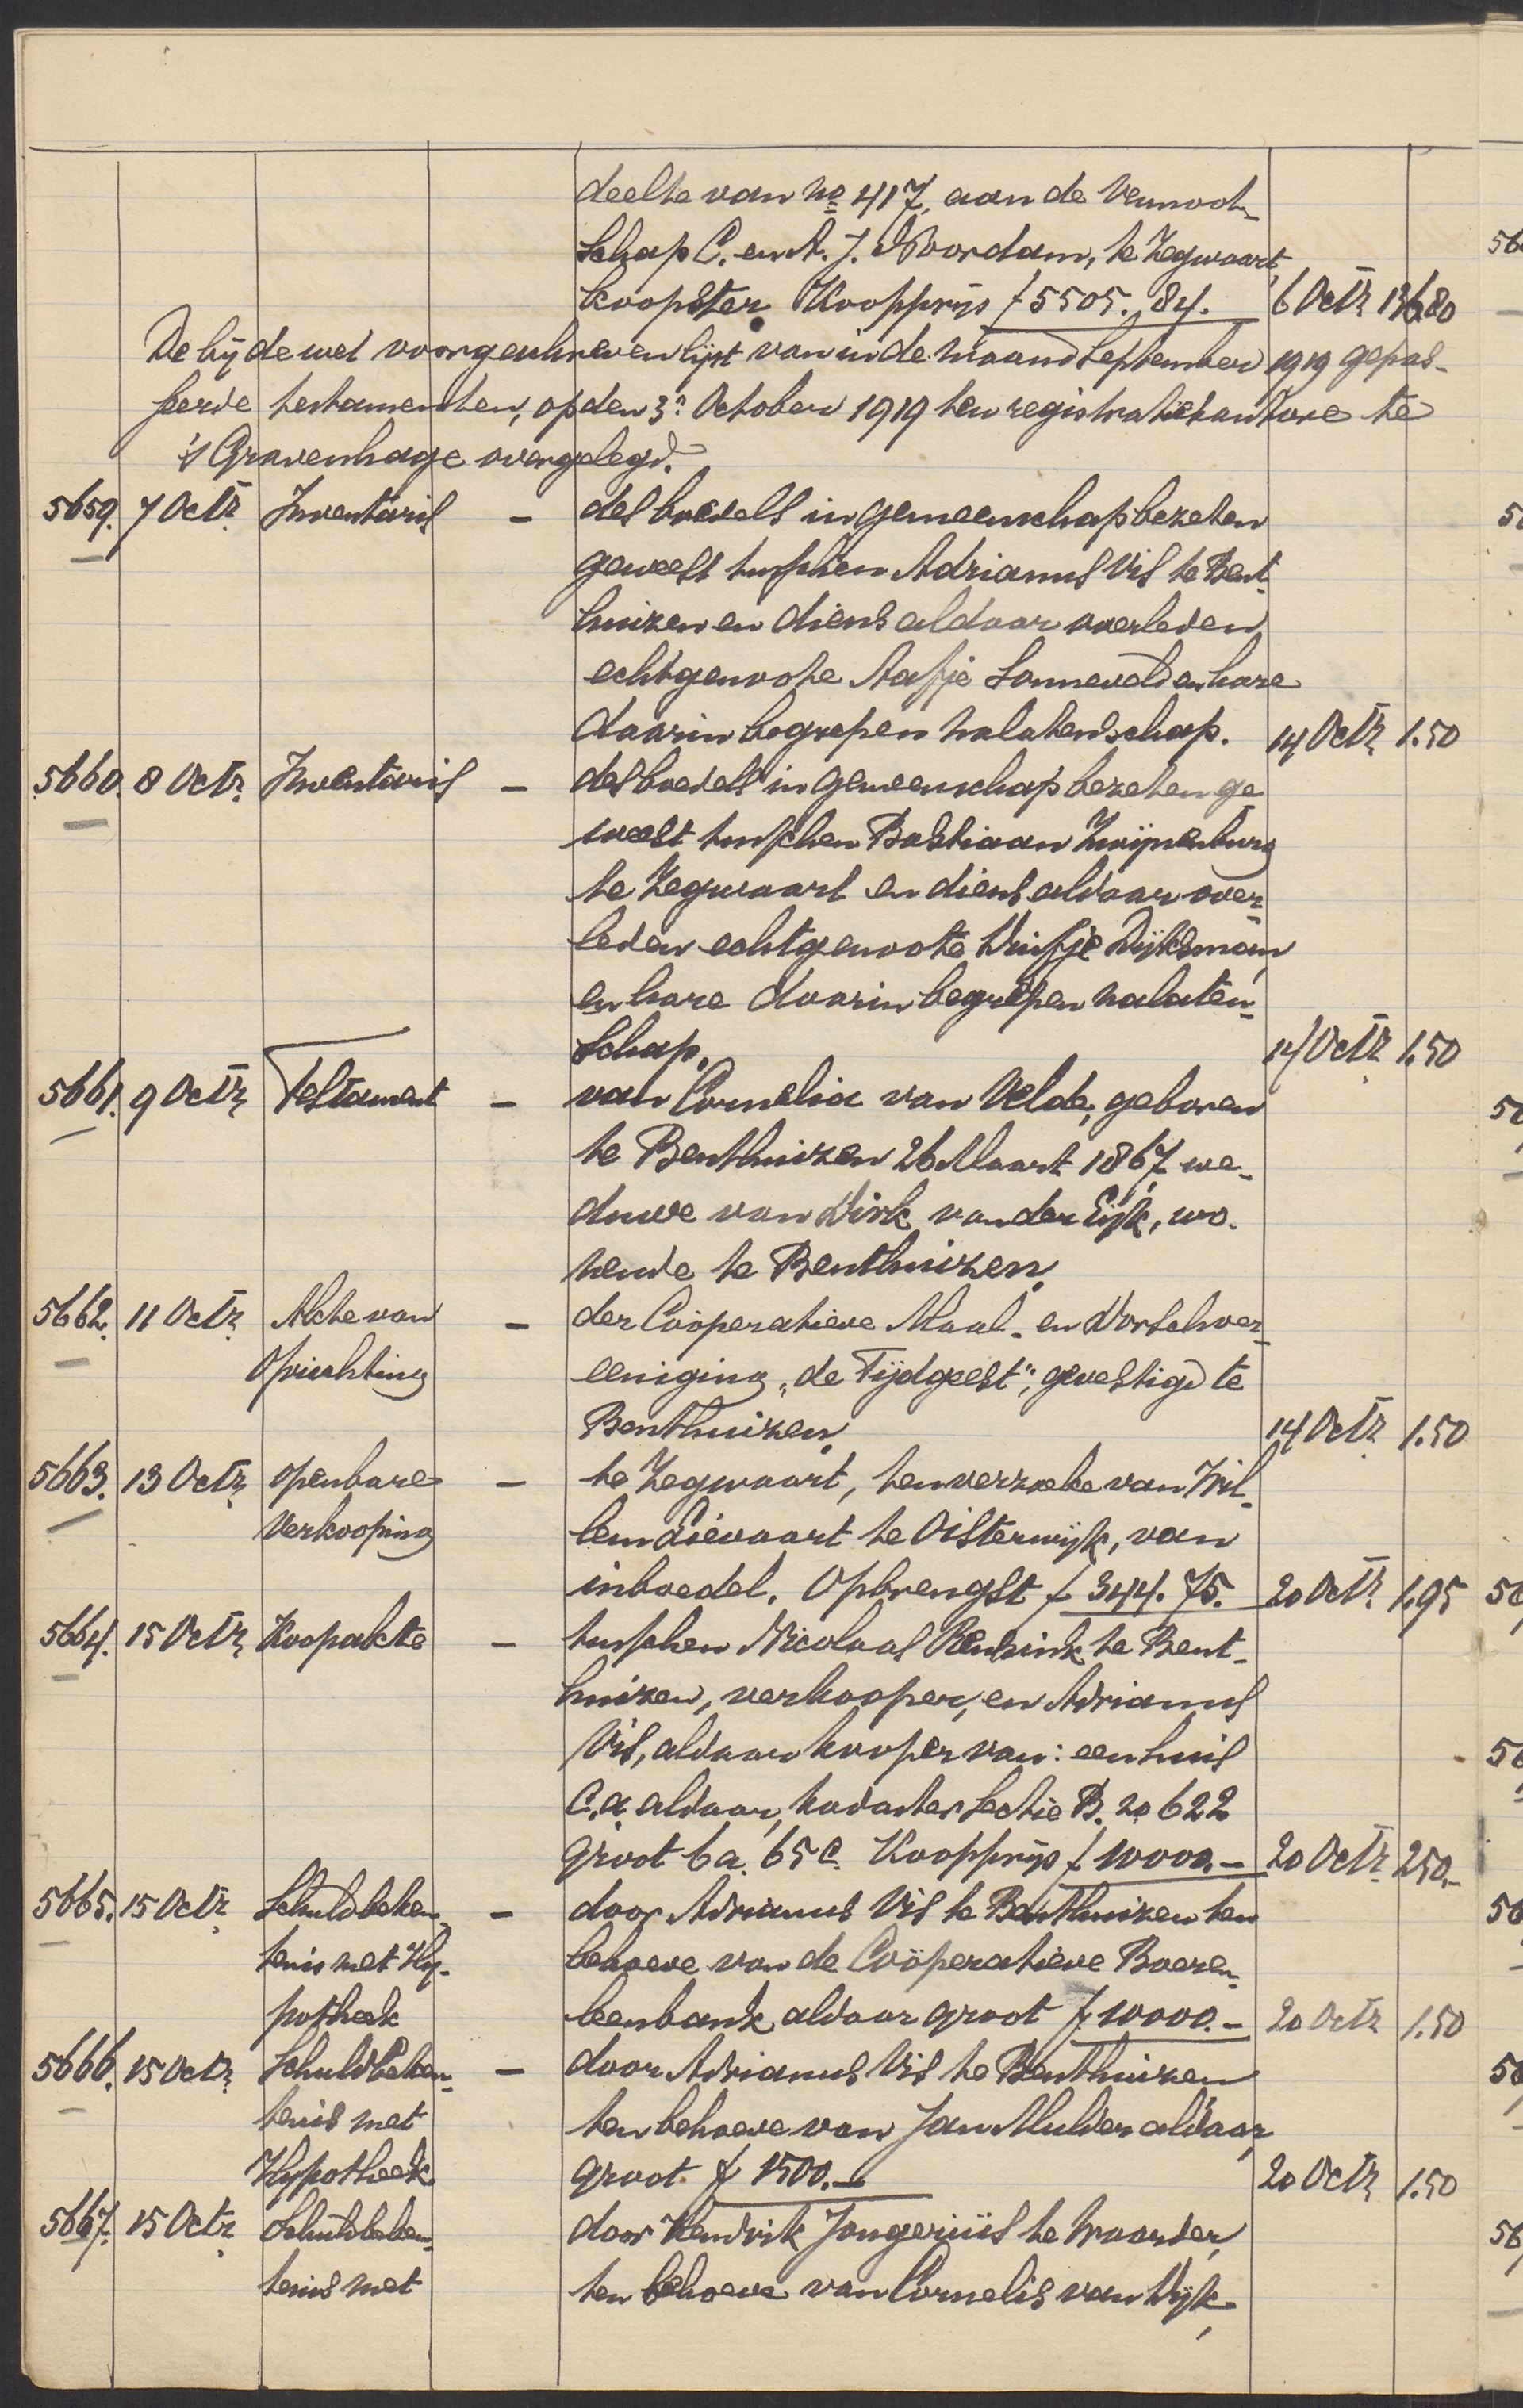 deelte van no 417, aan de Vennoot-
schap C. en A. J. Noordam, te Zegwaart,
koopster. Koopprijs f 5505.84. 6 Octr 136.80
De bij de wet voorgeschreven lijst van in de maand September 1919 gepas-
seerde testamenten, op den 3n October 1919 ten registratiekantore te
's Gravenhage overgelegd.
5659. 7 Octr Inventaris - des boedels in gemeenschap bezeten
geweest tusschen Adrianus Vis te Bent-
huizen en diens aldaar overleden
echtgenoote Aafje Sonneveld en hare
daarin begrepen nalatenschap. 14 Octr 1.50
5660. 8 Octr. Inventaris - des boedels in gemeenschap bezeten ge
weest tusschen Bastiaan Zwijnenburg
te Zegwaart en diens aldaar over-
leden echtgenoote Duifje Dijksman,
en hare daarin begrepen nalaten-
schap. 14 Octr 1.50
5661. 9 Octr Testament - van Cornelia van Velde, geboren
te Benthuizen 26 Maart 1867, we-
duwe van Dirk van der Eijk, wo-
nende te Benthuizen.
5662. 11 Octr Akte van - der Coöperatieve Maal- en Dorschver-
Oprichting eeniging „de Tijdgeest", gevestigd te
Benthuizen. 14 Octr 1.50
5663. 13 Octr openbare - te Zegwaart, ten verzoeke van Wil-
Verkooping lem Lievaart te Oisterwijk, van
inboedel. Opbrengst f 344.75. 20 Octr. 1.95
5664. 15 Octr Koopakte - tusschen Nicolaas Rensink te Bent-
huizen, verkooper, en Adrianus
Vis, aldaar kooper van: een huis
c.a. aldaar, kadaster Sectie B. no 622
groot 6 a. 65 c. Koopprijs f 10000.- 20 Octr 250.-
5665. 15 Octr Schuldbeken- - door Adrianus Vis te Benthuizen ten
tenis met Hy- behoeve van de Coöperatieve Boeren-
potheek leenbank aldaar groot f 10000.- 20 Octr 1.50
5666. 15 Octr. Schuldbeken- - door Adrianus Vis te Benthuizen
tenis met ten behoeve van Jan Mulder aldaar,
Hypotheek groot f 1500.- 20 Octr 1.50
5667. 15 Octr Schuldbeken- door Hendrik Jongeriüs te Waarder,
tenis met ten behoeve van Cornelis van Dijk,